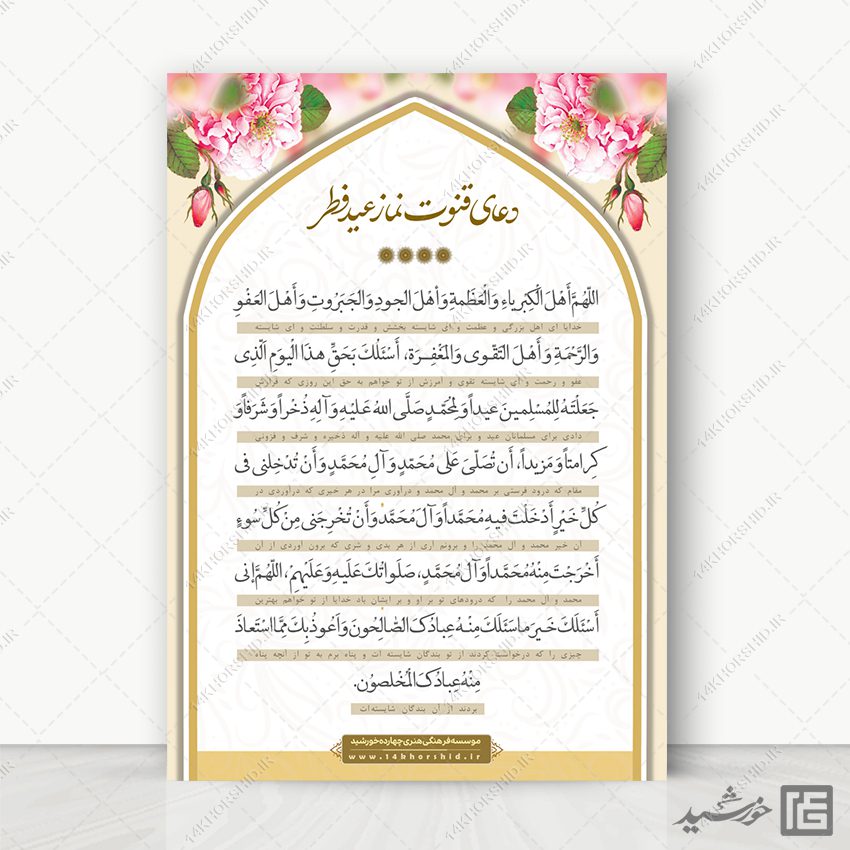 دعای قنوت نماز عید فطر
اللّهُمَّ أَهْلَ الْكِبْرِیاءِ وَالْعَظَمةِ وَاَهْلَ الجودِ وَالجَبَرُوتِ وَأَهْلَ العَفْوِ
خدایا ای اهل بزرگی و عظمت و ای شایسته بخشش و قدرت و سلطنت و ای شایسته
وَالرَّحْمَةِ وَأَهْلَ التَقْوى وَالمَغْفِرَة، أَسْئَلُكَ بَحَقِّ هذَا الْیَومِ الَّذِی
عفو و رحمت و ای شایسته تقوی و آمرزش از تو خواهم به حق این روزی که قرارش
جَعَلْتَهُ لِلمُسْلِمینَ عیداً وَلِمُحَمَّدٍ صَلَّى اللهُ عَلیْهِ وَآلِهِ ذُخْراً وَشَرَفاً وَ
دادی برای مسلمانان عید و برای محمد صلی الله علیه و آله ذخیره و شرف و فزونی
كِرامَتاً وَمَزیداً، أَن تُصَلِّیَ عَلى مُحَمّدٍ وَآلِ مُحَمَّدٍ وَأَنْ تُدْخِلنی فی
مقام که درود فرستی بر محمد و آل محمد و درآوری مرا در هر خیری که درآوردی در
كُلِّ خَیْرٍ أَدْخَلْتَ فیهِ مُحَمَّداً وَآلَ مُحَمَّدْ وَأَنْ تُخْرِجَنی مِنَ كُلِّ سُوءٍ
آن خیر محمد و آل محمد را و برونم آری از هر بدی و شری که برون آوردی از آن
أَخْرَجْتَ مِنْهُ مُحَمَّداً وَآلَ مُحَمَّدٍ، صَلَواتُكَ عَلَیهِ وَعَلَیْهِمْ، اللّهُمَّ إنی
محمد و آل محمد را که درودهای تو بر او و بر ایشان باد خدایا از تو خواهم بهترین
أَسْئَلُكَ خَیرَ ما سَئَلَكَ مِنْهُ عِبادُكَ الصّالِحُونَ وَأَعُوذُ بِكَ مِمَّا اسْتَعاذَ
چیزی را که درخواست کردند از تو بندگان شایسته ات و پناه برم به تو از آنچه پناه
مِنْهُ عِبادُكَ الْمُخْلَصُون.
بردند از آن بندگان شایسته‌ات
موسسه فرهنگی هنری چهارده خورشید
www.14khorshid.ir
خورشید
14KHORSHID.IR